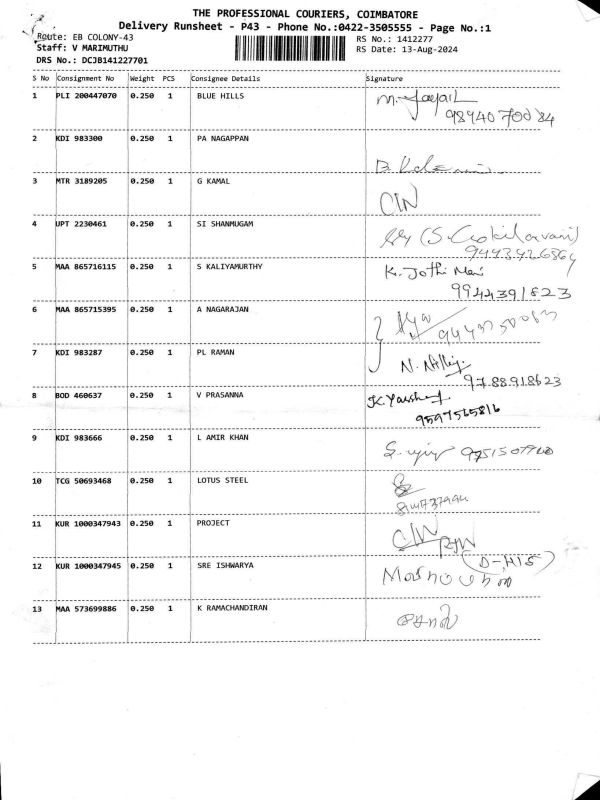 THE PROFESSIONAL COURIERS, COIMBATORE
Delivery Runsheet - P43 - Phone No.:0422-3505555 - Page No.:1
Route: EB COLONY-43
RS No.: 1412277
Staff: V MARIMUTHU
RS Date: 13-Aug-2024
DRS No.: DCJB141227701
S No Consignment No Weight PCS Consignee Details Signature
1 PLI 200447070 0.250 1 BLUE HILLS
9894070084
2 KDI 983300 0.250 1 PA NAGAPPAN
3 MTR 3189205 0.250 1 G KAMAL
4 UPT 2230461 0.250 1 SI SHANMUGAM
5 MAA 865716115 0.250 1 S KALIYAMURTHY K. Jothi
9944391823
6 MAA 865715395 0.250 1 A NAGARAJAN
7 KDI 983287 0.250 1 PL RAMAN
9788918623
8 BOD 460637 0.250 1 V PRASANNA
9597565816
9 KDI 983666 0.250 1 L AMIR KHAN
10 TCG 50693468 0.250 1 LOTUS STEEL
11 KUR 1000347943 0.250 1 PROJECT
12 KUR 1000347945 0.250 1 SRE ISHWARYA
13 MAA 573699886 0.250 1 K RAMACHANDIRAN